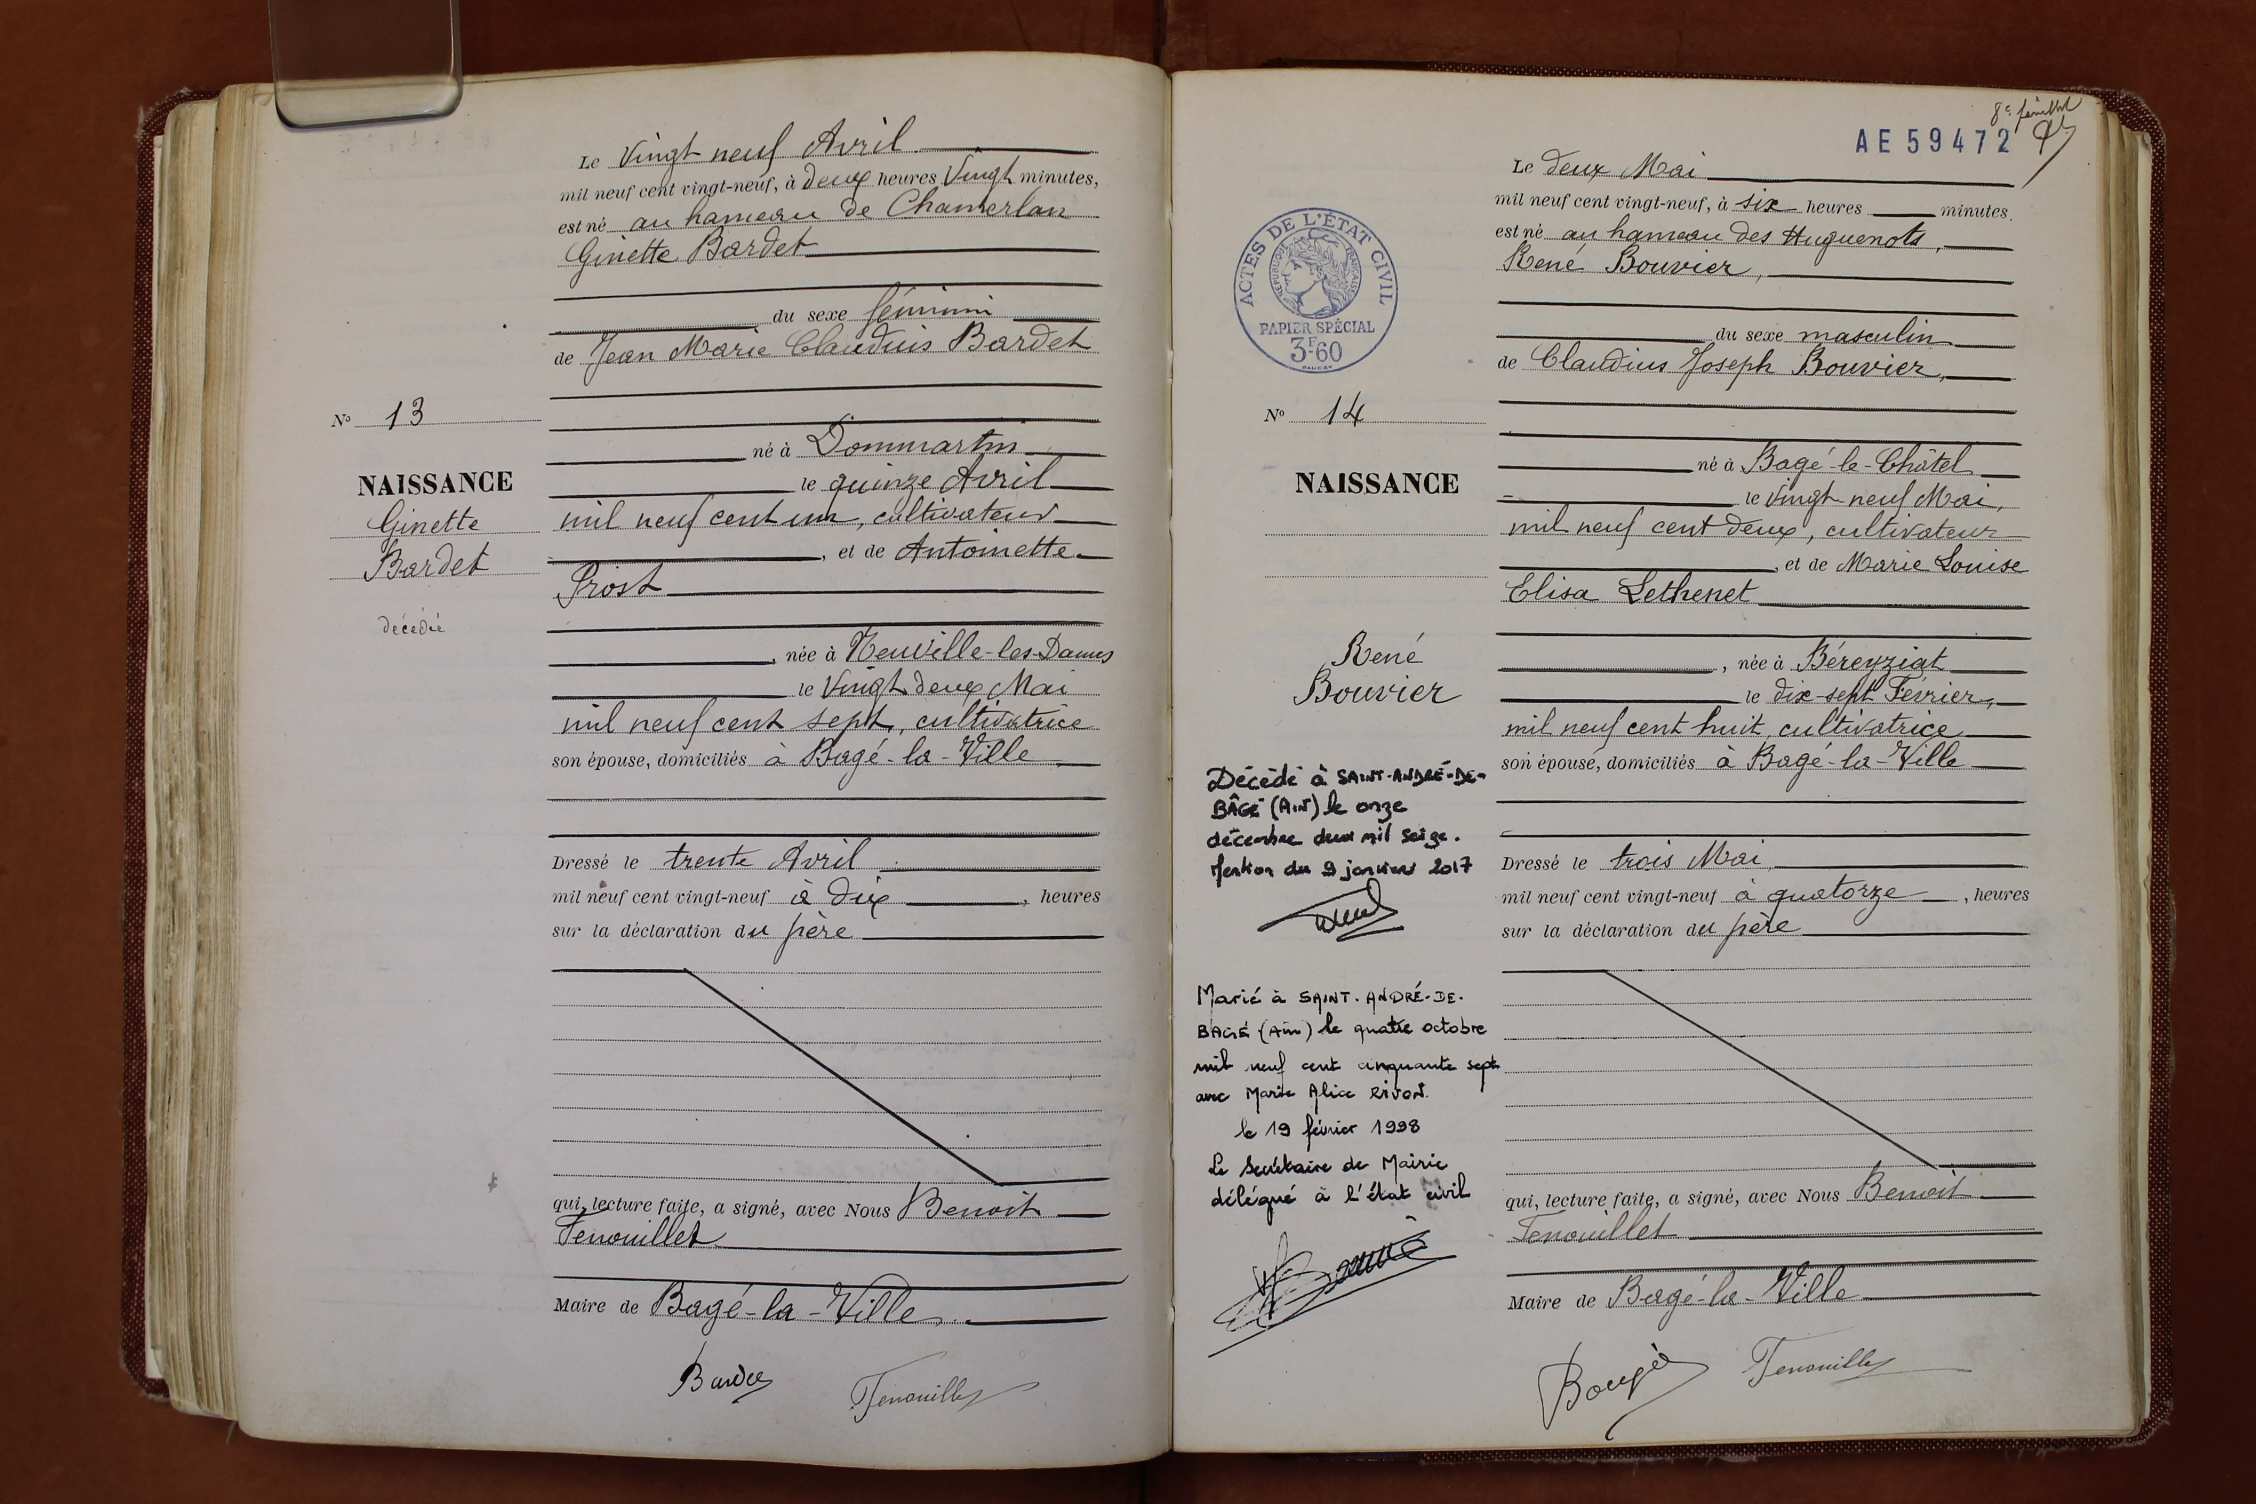 Le Vingt neuf Avril
mil neuf cent vingt-neuf, à deux heures Vingt minutes,
est né au hameau de Chamerlan
Ginette Bardet
du sexe féminin
de Jean Marie Claudius Bardet
No 13
né à Dommartin
NAISSANCE
le quinze Avril
Ginette
mil neuf cent un, cultivateur
Bardet
, et de Antoinette
Prost
décédée
, née à Neuville-les-Dames
le Vingt deux Mai
mil neuf cent sept, cultivatrice
son épouse, domiciliés à Bagé-la-Ville
Dressé le trente Avril
mil neuf cent vingt-neuf à dix , heures
sur la déclaration du père
qui, lecture faite, a signé, avec Nous Benoit
Fenouillet
Maire de Bagé-la-Ville
Bardet
Fenouillet
8e feuillet
AE 59472
Le deux Mai
mil neuf cent vingt-neuf, à six heures minutes.
est né au hameau des Huguenots,
René Bouvier,
ACTES DE L'ÉTAT CIVIL
RÉPUBLIQUE FRANÇAISE
PAPIER SPÉCIAL
3F.60
du sexe masculin
de Claudius Joseph Bouvier,
No 14
né à Bagé-le-Châtel
NAISSANCE
le Vingt-neuf Mai,
mil neuf cent deux, cultivateur
, et de Marie Louise
Elisa Lethenet
René
Bouvier
, née à Béreyziat
le dix-sept Février,
mil neuf cent huit, cultivatrice
son épouse, domiciliés à Bagé-la-Ville
Décédé à SAINT-ANDRÉ-DE-
BÂGÉ (Ain) le onze
décembre deux mil seize.
Mention du 9 janvier 2017
Dressé le trois Mai
mil neuf cent vingt-neuf à quatorze , heures
sur la déclaration du père
Marié à SAINT-ANDRÉ-DE-
BAGÉ (Ain) le quatre octobre
mil neuf cent cinquante sept
avec Marie Alice
le 19 février 1998
Le Secrétaire de Mairie
délégué à l'état civil
qui, lecture faite, a signé, avec Nous Benoit
Fenouillet
Maire de Bagé-la-Ville
Fenouillet